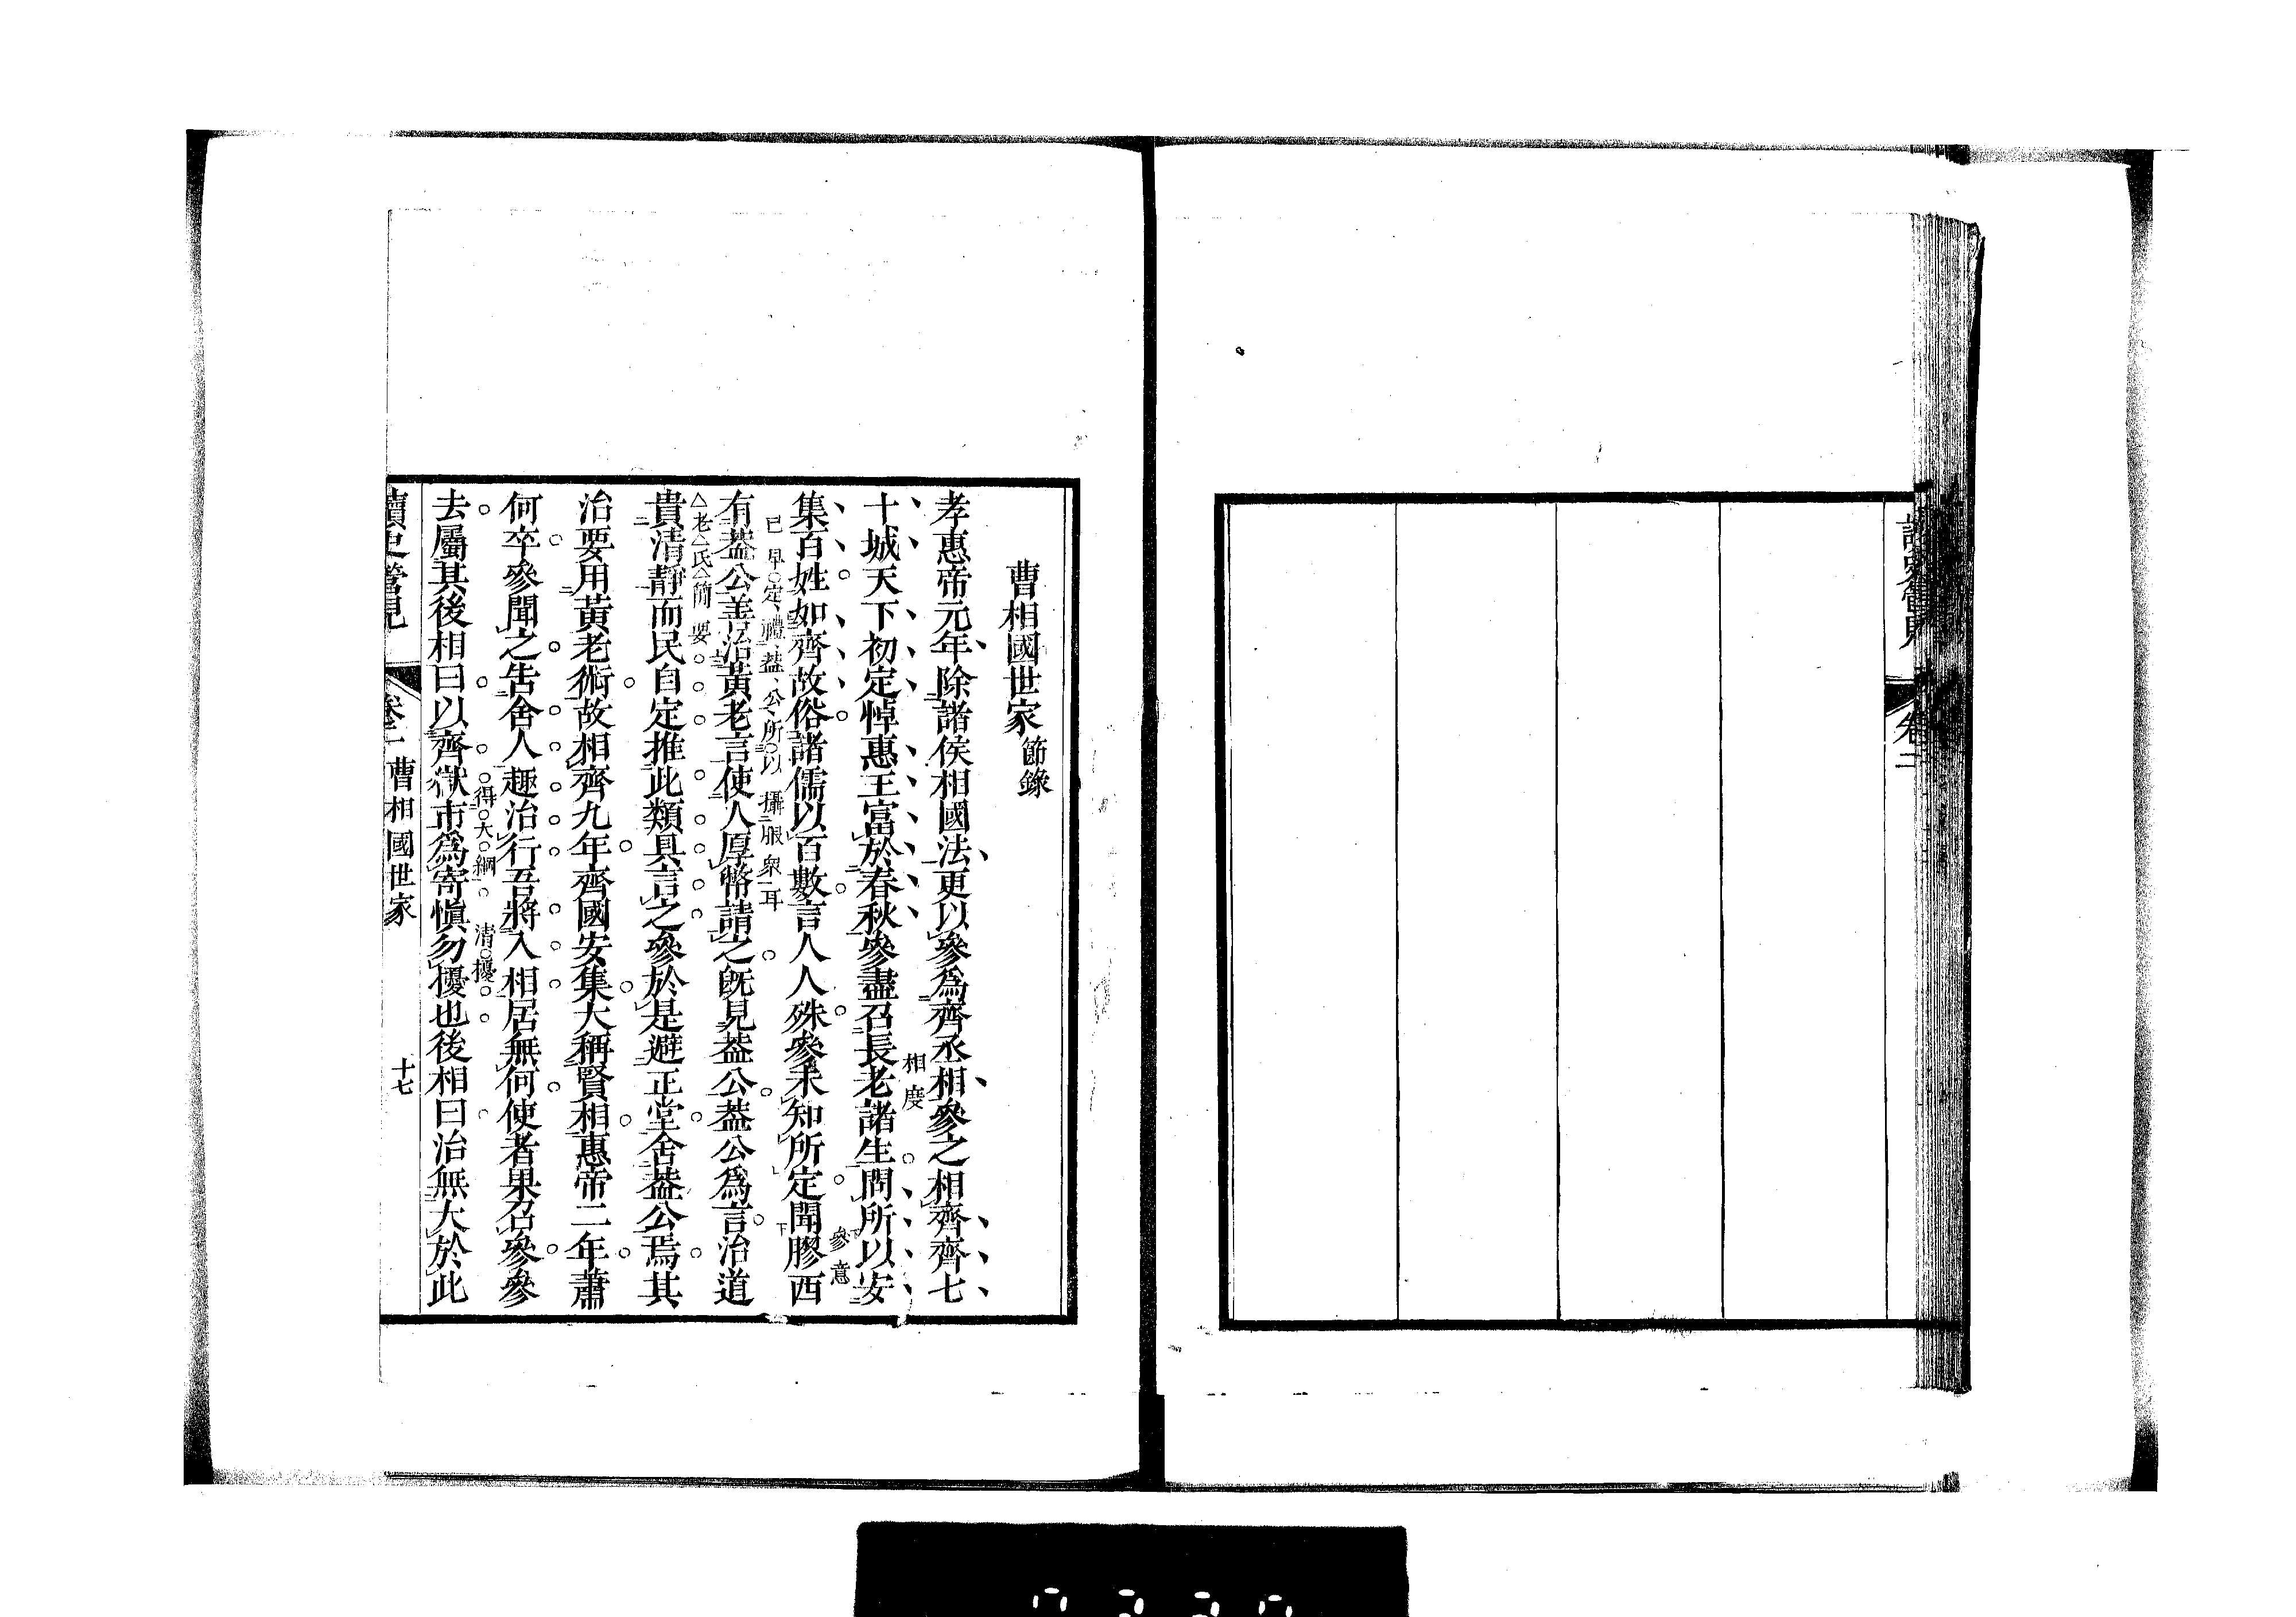 曹相國世家 節錄
孝惠帝元年除諸侯相國法更以參爲齊丞相參之相齊齊七
相度
十城天下初定悼惠王富於春秋參盡召長老諸生問所以安
參意
集百姓如齊故俗諸儒以百數言人人殊參未知所定聞膠西
已早定禮蓋公所以攝服衆耳
有葢公善治黃老言使人厚幣請之既見葢公葢公爲言治道
老氏簡要
貴清靜而民自定推此類具言之參於是避正堂舍葢公焉其
治要用黃老術故相齊九年齊國安集大稱賢相惠帝二年蕭
何卒參聞之告舍人趣治行吾將入相居無何使者果召參參
得大綱 清擾
去屬其後相曰以齊獄市爲寄愼勿擾也後相曰治無大於此
讀史管見 卷二 曹相國世家 十七
卷二